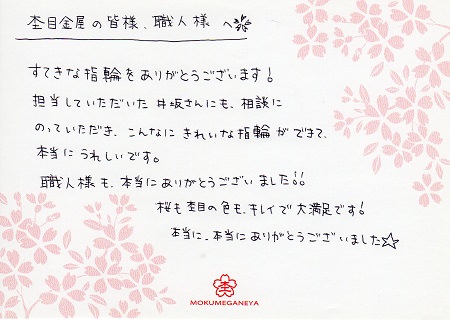 杢目金屋の皆様、職人様 へ
すてきな指輪をありがとうございます!
担当していただいた 井坂さんにも、相談に
のっていただき、こんなに きれいな指輪が できて、
本当に うれしいです。
職人様も、本当に ありがとうございました!!
桜も 杢目の色も、キレイで 大満足です!
本当に、本当に ありがとうございました☆
杢
MOKUMEGANEYA